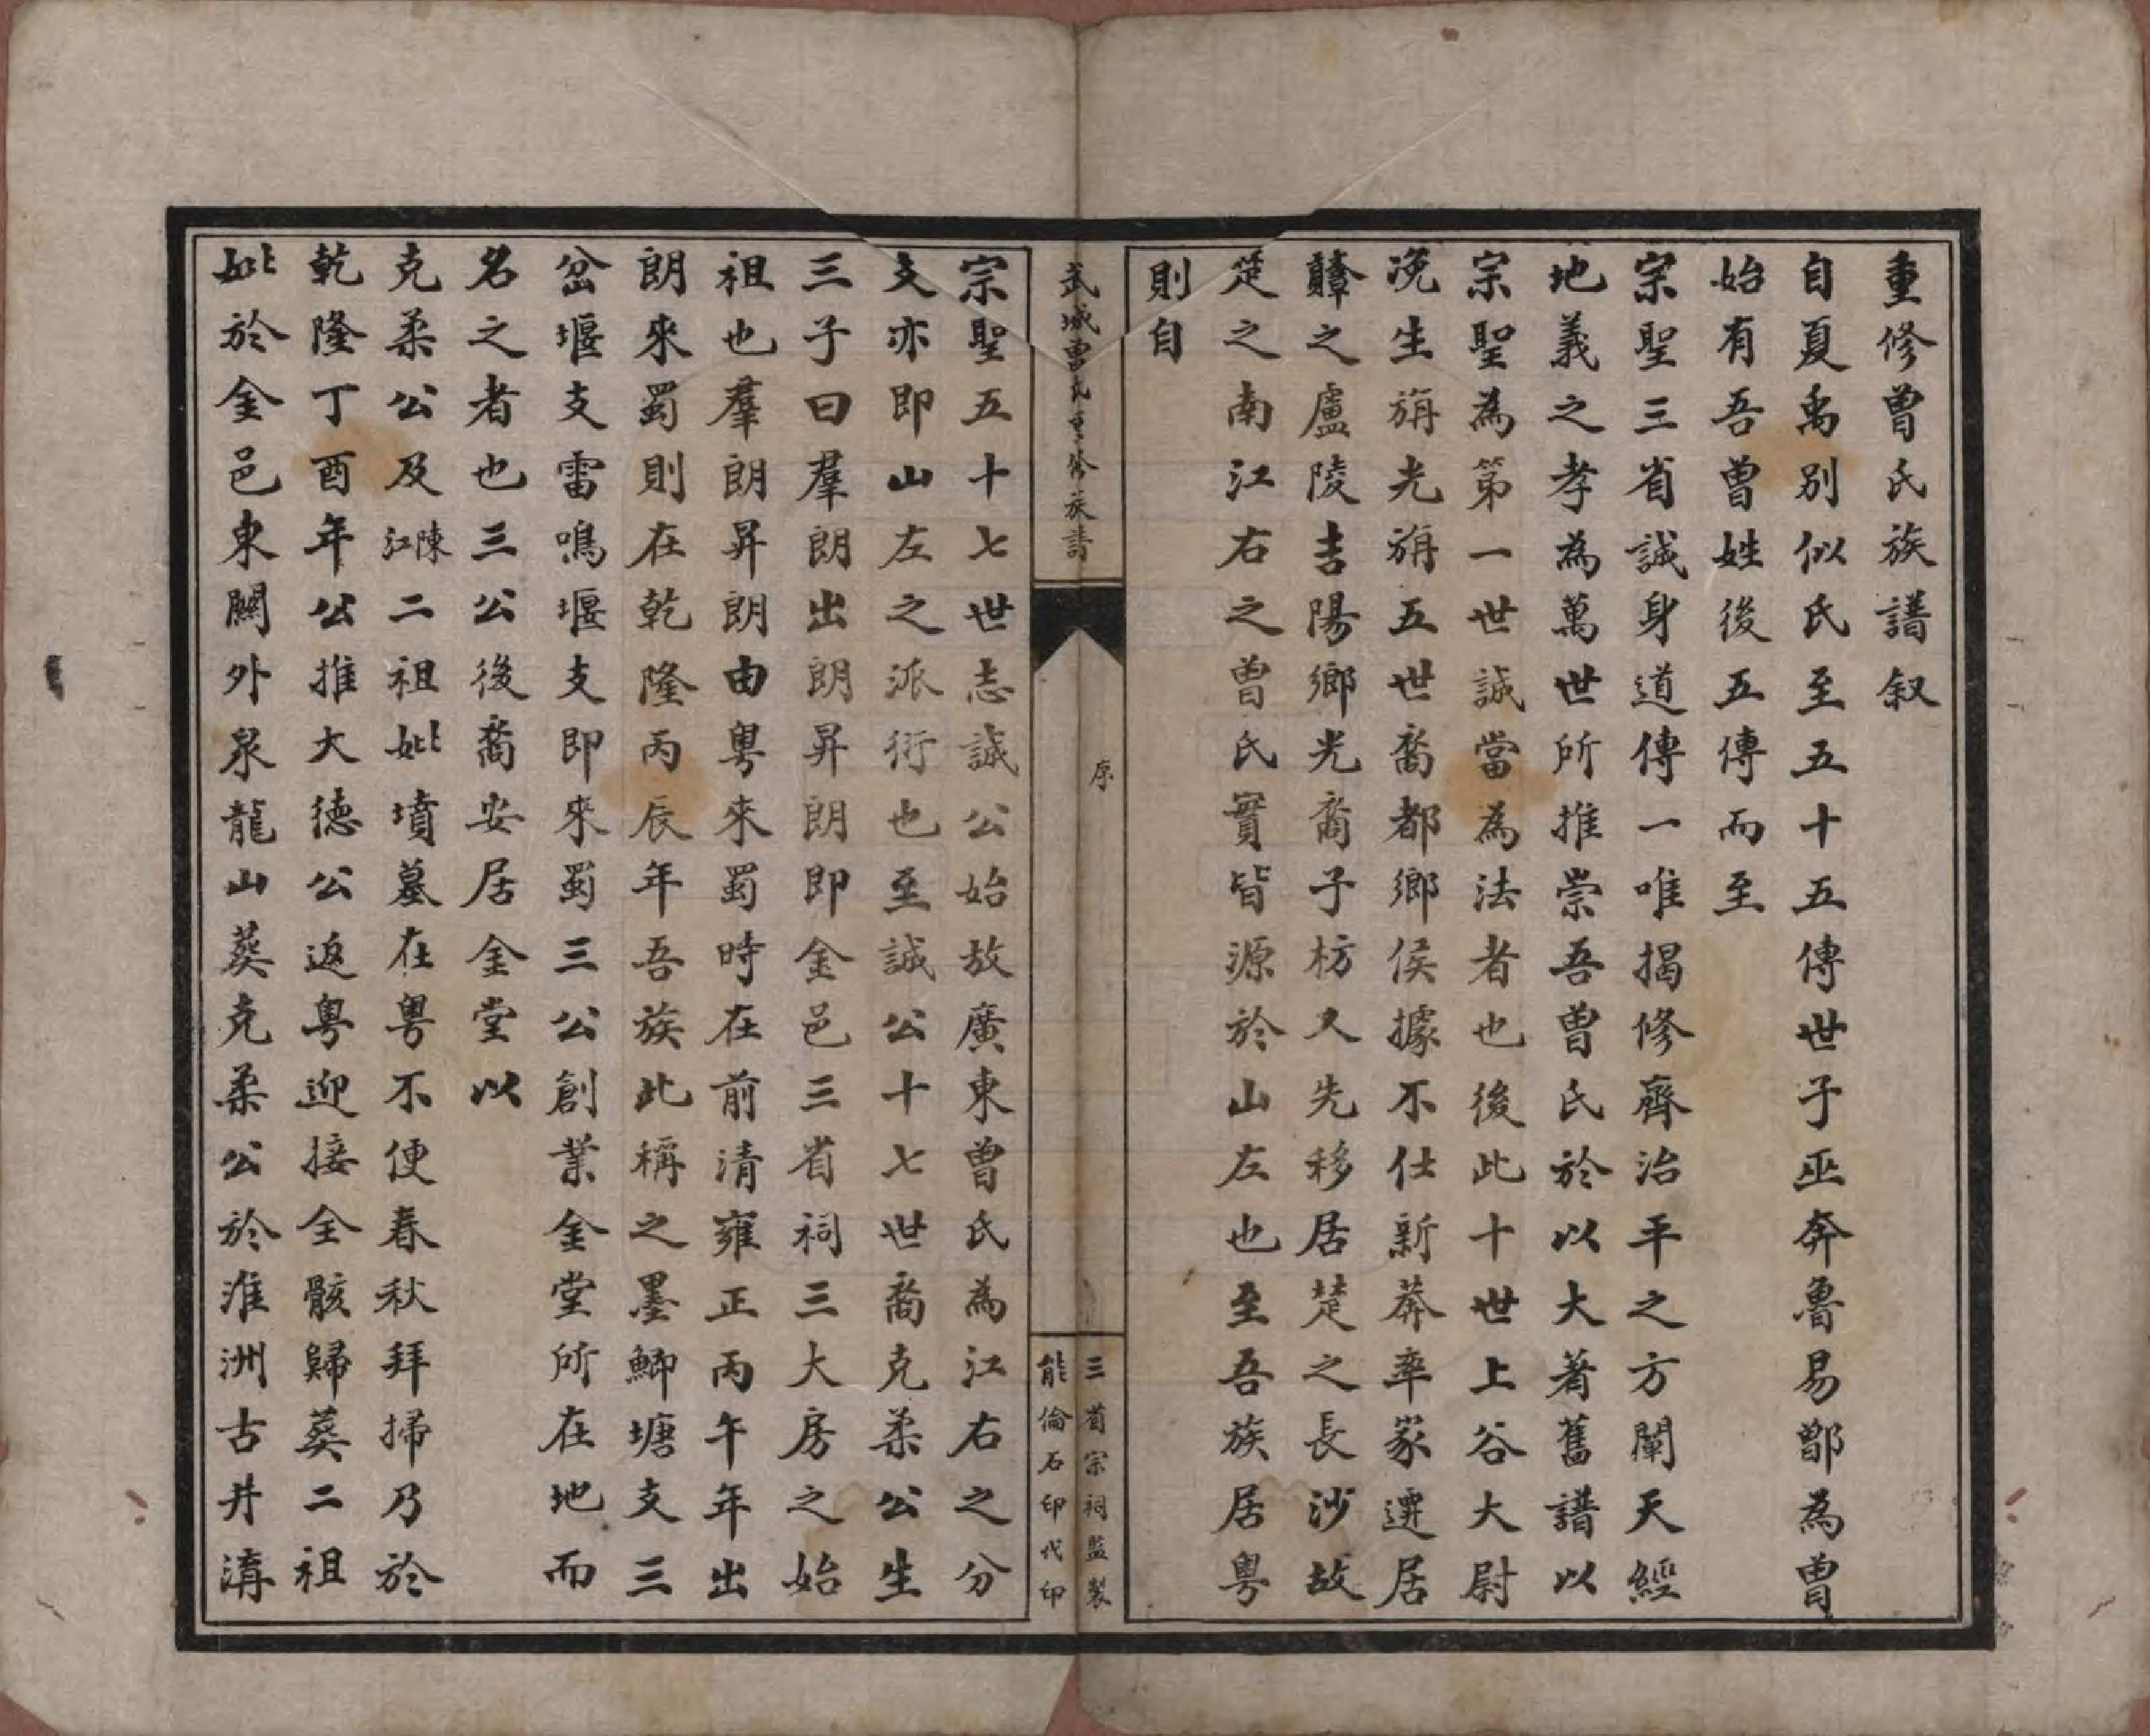 重修曾氏族譜叙
自夏禹別似氏至五十五傳世子巫奔魯易鄫為曾
始有吾曾姓後五傳而至
宗聖三省誠身道傳一唯揭修齊治平之方闡天經
地義之孝為萬世所推崇吾曾氏於以大著舊譜以
宗聖為第一世誠當為法者也後此十世上谷大尉
浼生旃光旃五世裔都鄉侯據不仕新莽率家遷居
贛之盧陵吉陽鄉光裔子枋又先移居楚之長沙故
楚之南江右之曾氏實皆源於山左也至吾族居粵
則自
武城曾氏重修族譜
序
三省宗祠監製
能倫石印代印
宗聖五十七世志誠公始故廣東曾氏為江右之分
支亦即山左之派衍也至誠公十七世裔克柔公生
三子曰羣朗出朗昇朗即金邑三省祠三大房之始
祖也羣朗昇朗由粵來蜀時在前清雍正丙午年出
朗來蜀則在乾隆丙辰年吾族此稱之墨鯽塘支三
岔堰支雷鳴堰支即來蜀三公創業金堂所在地而
名之者也三公後裔安居金堂以
克柔公及江陳二祖妣墳墓在粵不便春秋拜掃乃於
乾隆丁酉年公推大德公返粵迎接全骸歸葬二祖
妣於金邑東關外泉龍山葬克柔公於淮洲古井溝